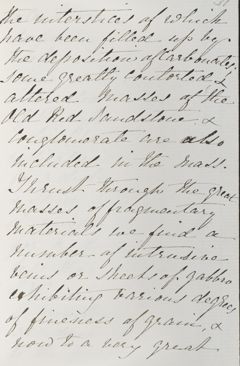 the interstices of which
have been filled up by
the deposition of carbonates;
some greatly contorted &
altered masses of the
Old Red Sandstone &
conglomerate are also
included in the mass.
Thrust through the great
masses of fragmentary
materials we find a
number of intrusive
veins or sheets of gabbro
exhibiting various degrees
of fineness of grain, &
now to a very great